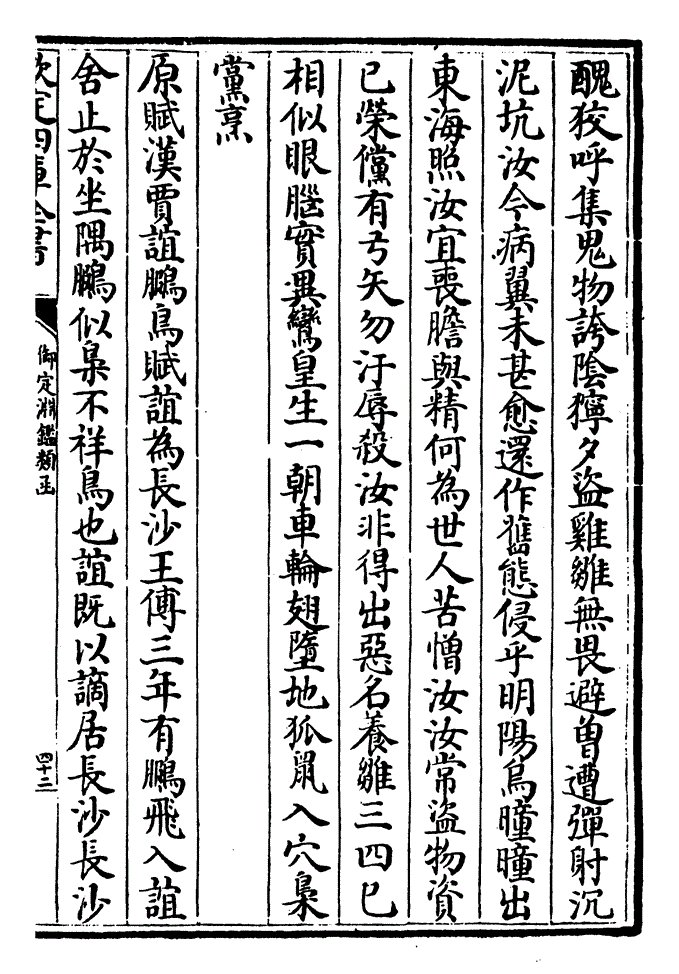 醜狡呼集鬼物誇陰獰夕盜雞雛無畏避曾遭彈射沉
泥坑汝今病翼未甚愈還作舊態侵乎明陽烏曈曈出
東海照汝宜喪膽與精何為世人苦憎汝汝常盜物資
已榮儻有弓矢勿汙辱殺汝非得出惡名養雛三四已
相似眼腦實異鸞皇生一朝車輪翅墮地狐鼠入穴梟
黨烹
原賦漢賈誼鵩鳥賦誼為長沙王傅三年有鵩飛入誼
舍止於坐隅鵩似梟不祥鳥也誼既以謫居長沙長沙
欽定四庫全書
御定淵鑑類函
四十二